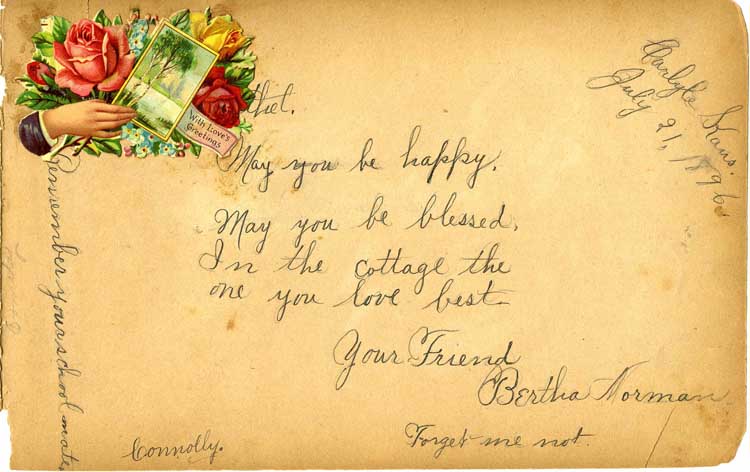 With Love's
Greetings
thel.
Carlyle Kans.
July 21, 1896.
May you be happy.
May you be blessed.
In the cottage the
one you love best.
Your Friend
Bertha Norman.
Forget me not.
Connolly.
Remember your school mate,